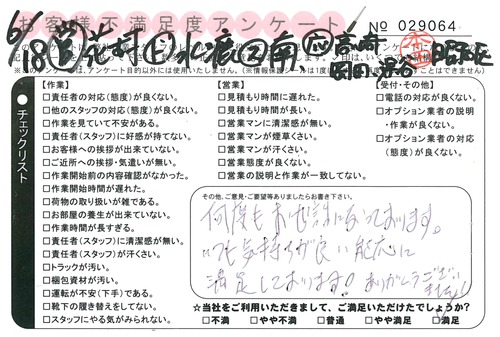 お客様不満足度アンケート
No 029064
【作業】
□責任者の対応(態度)が良くない。
□他のスタッフの対応(態度)が良くない。
□作業を見ていて不安がある。
□責任者(スタッフ)に好感が持てない。
□お客様への挨拶が出来ていない。
□ご近所への挨拶・気遣いが無い。
□作業開始前の内容確認がなかった。
□作業開始時間が遅れた。
□荷物の取り扱いが雑である。
□お部屋の養生が出来ていない。
□作業時間が長すぎる。
□責任者(スタッフ)に清潔感が無い。
□責任者(スタッフ)が汗くさい。
□トラックが汚い。
□梱包資材が汚い。
□運転が不安(下手)である。
□靴下の履き替えをしてない。
□スタッフにやる気がみられない。
【営業】
□見積もり時間に遅れた。
□見積もり時間が長い。
□営業マンに清潔感が無い。
□営業マンが煙草くさい。
□営業マンが汗くさい。
□営業態度が良くない。
□営業の説明と作業が一致してない。
【受付・その他】
□電話の対応が良くない。
□オプション業者の説明
・作業が良くない。
□オプション業者の対応
(態度)が良くない。
チェックリスト
その他、ご意見・ご要望等ありましたらお書き下さい。
何度もお世話になっております。
いつも気持ちが良い対応に
満足しております! ありがとうござい
ます
☆当社をご利用いただきまして、ご満足いただけたでしょうか?
□不満 □やや不満 □普通 □やや満足 □満足